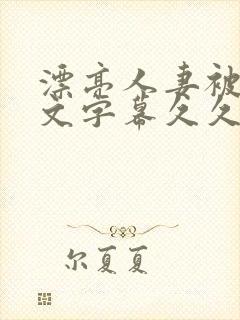 漂亮人妻被
文字幕久久
尔夏夏